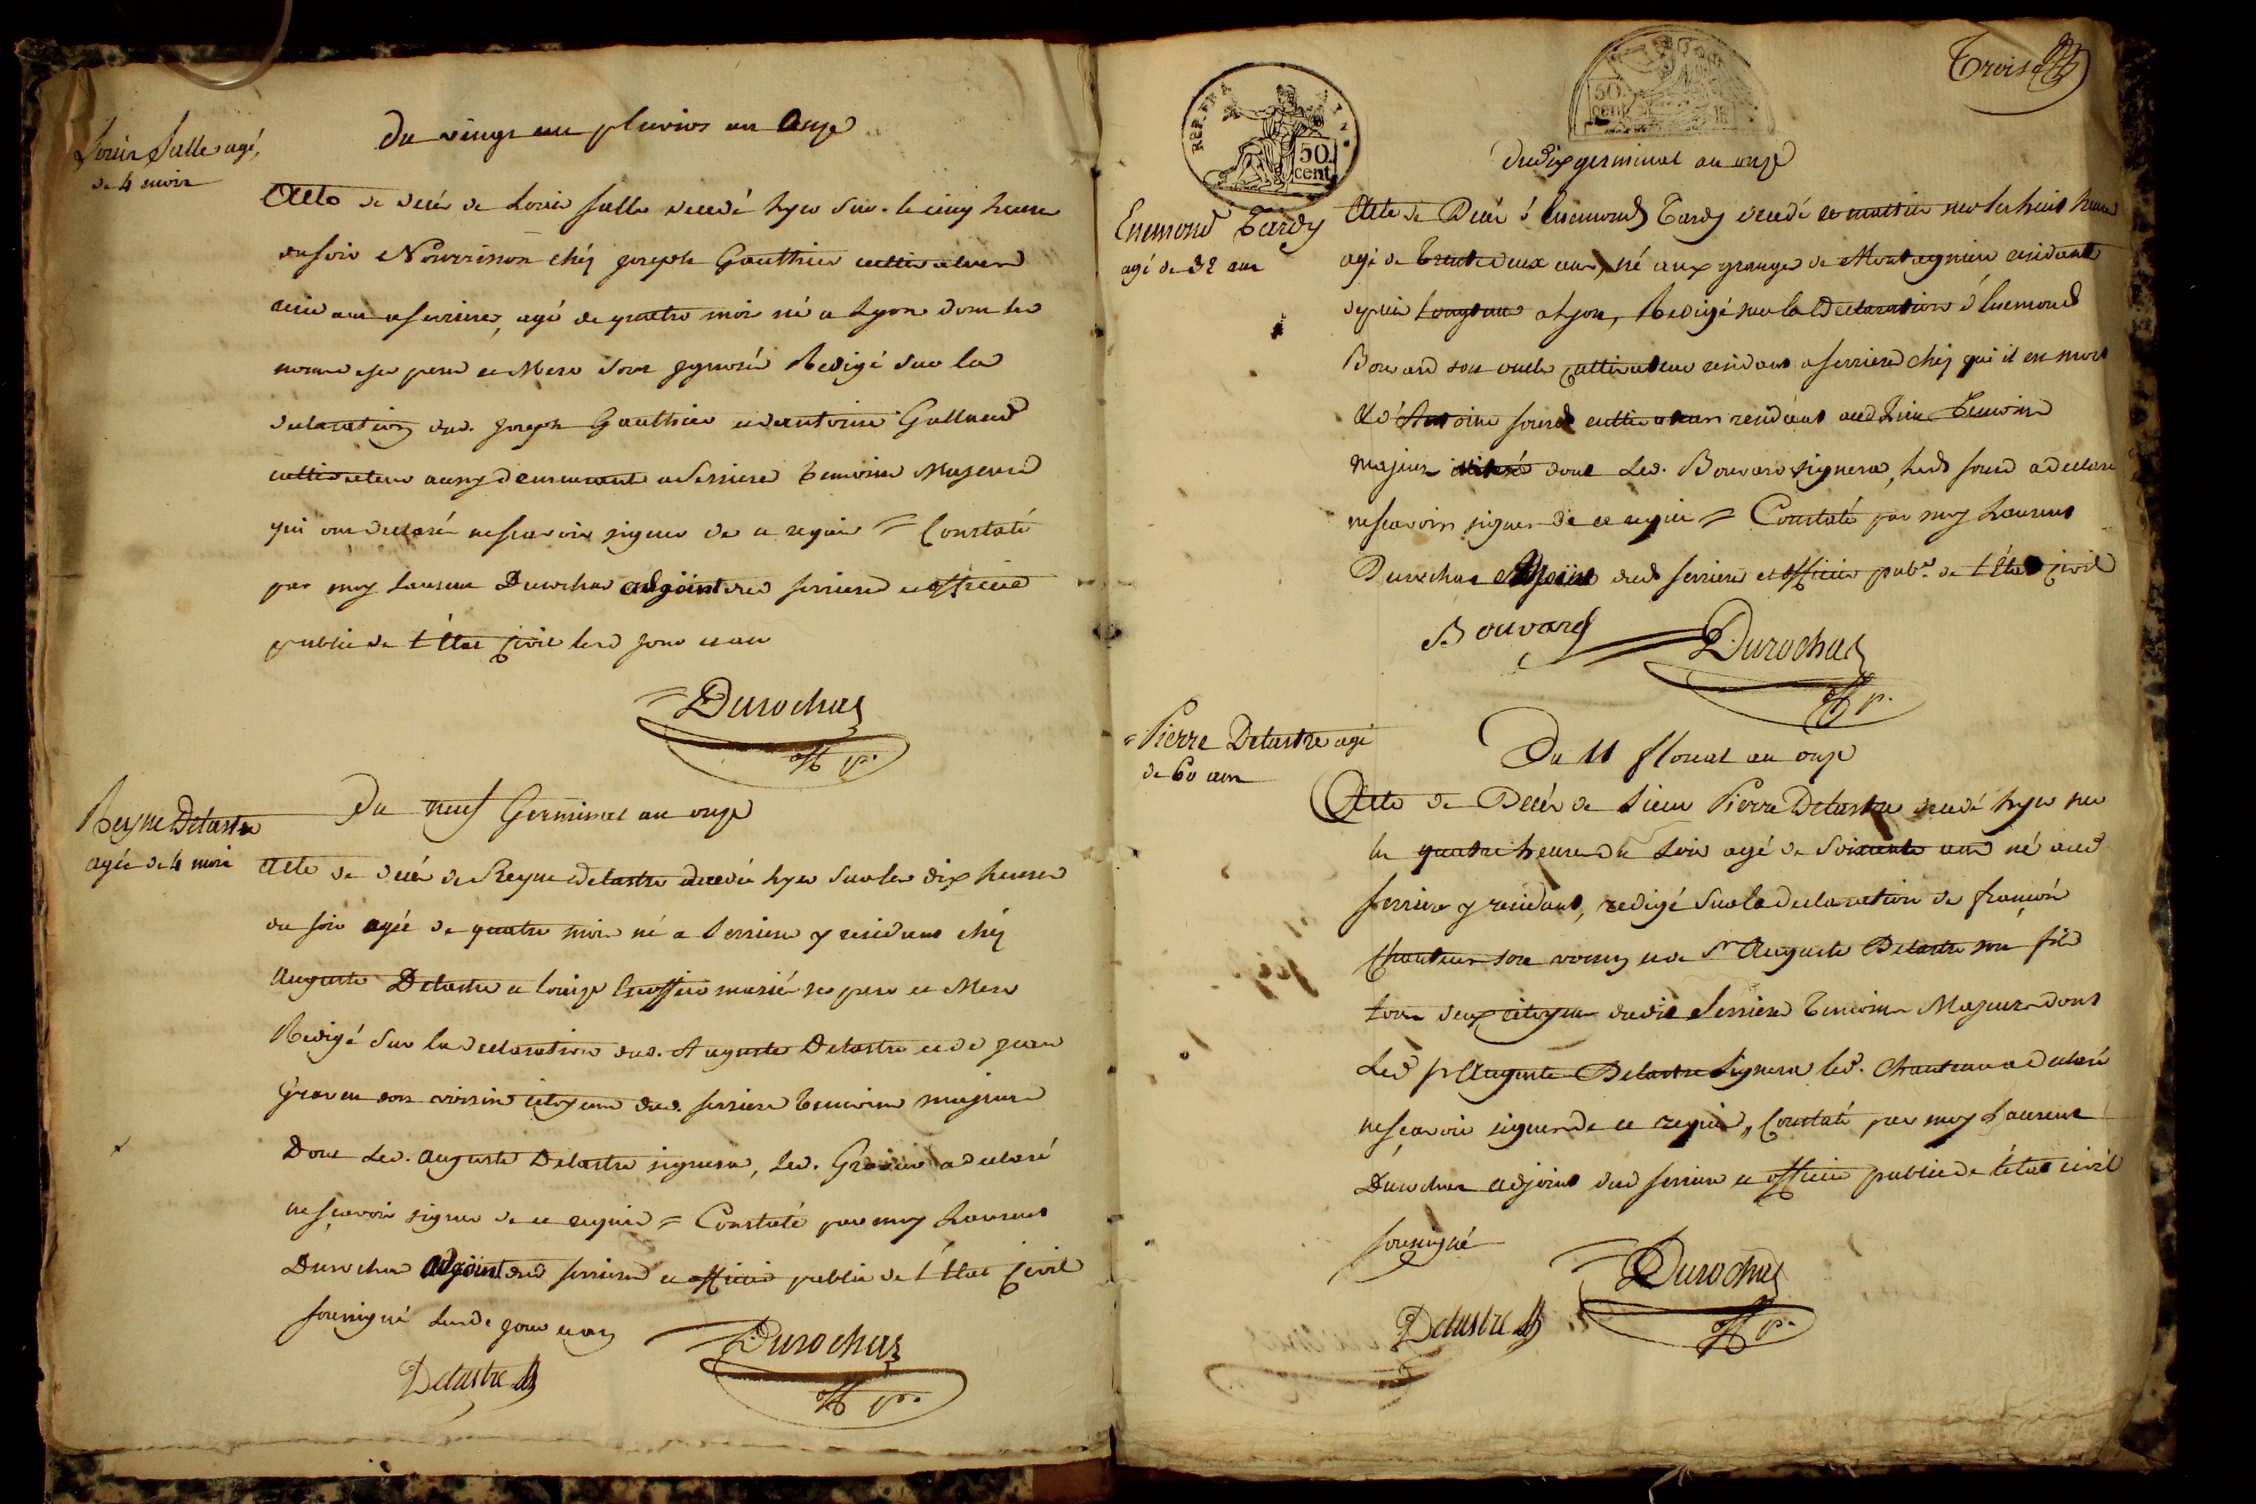 Louis Salle agé
de 4 mois
Du vingt un pluvios an Onze
Acte de decés de Louis Salle decedé hyer sur le cinq heures
du soir Nourrisson chéz Joseph Gauthier cultivateur
agé de quatre mois né a Lyon dont les
noms de ses pere et Mere sont ignorés Redigé sur la
declaration dud. Joseph Gauthier et d'antoine
cultivateurs aussy demeurant a Serriere temoins Majeurs
qui ont declaré ne scavoir signer de ce requis = Constaté
par moy Laurent Durochas adjoint dud Serriere et officier
public de l'Etat Civil led jour et an
Durochas
Reyne Delastre
agée de 4 mois
Du neuf Germinal an onze
Acte de decés de Reyne Delastre decedée hyer sur les dix heures
du soir agée de quatre mois né a Serriere y residant chéz
Auguste Delastre et Louise mariés ses pere et Mere
Redigé sur la declaration dud. Auguste Delastre et de Jean
Gravier son voisin citoyens dud. Serriere temoins majeurs
Dont Led. Auguste Delastre signera, Led. Gravier a declaré
ne sçavoir signer de ce requis = Constaté par moy Laurent
Durochas adjoint dud Serriere et officier public de l'Etat Civil
soussigné Lesd. jour et an
Durochas
Delastre
Trois
REP. FRA
50
cent
50
cent
Du dix germinal an onze
Enemond Tardy
agé de 32 ans
Acte de Decés d'Enemond Tardy decedé ce matin sur les huit heures
agé de trente deux ans, né aux granges de Montagnieu residant
depuis Longtems a Lyon, Redigé sur la Declaration d'Enemond
Bouvard son oncle cultivateur residant a Serriere chéz qui il en mort
et d'Antoine cultivateur residant aud Lieu temoins
majeurs dont Led. Bouvard signera, Led a declaré
ne scavoir signer de ce requis = Constaté par moy Laurent
Durochas adjoint dud Serriere et officier pub. de l'Etat Civil
Bouvard
Durochas
Pierre Delastre agé
de 60 ans
Du 11 floreal an onze
Acte de Decés de Sieur Pierre Delastre decedé hyer sur
les quatre heures du soir agé de soixante ans né aud
Serriere y residant, redigé sur la declaration de françois
Chanteur son voisin et de Sr Auguste Delastre son fils
tous deux citoyens dudit Serriere temoins Majeurs dont
Led Sr Auguste Delastre signera led. Chanteur a declaré
ne sçavoir signer de ce requis, Constaté par moy Laurent
Durochas adjoint dud Serriere et officier public de l'etat civil
soussigné
Durochas
Delastre